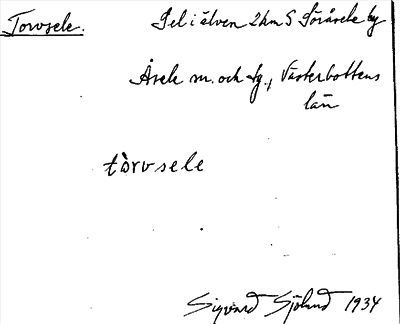 Torvsele.
Sel i älven 2 km S Söråsele by
Åsele sn. och tg., Västerbottens
län
tòrvsele
Sigvard Sjölund 1934